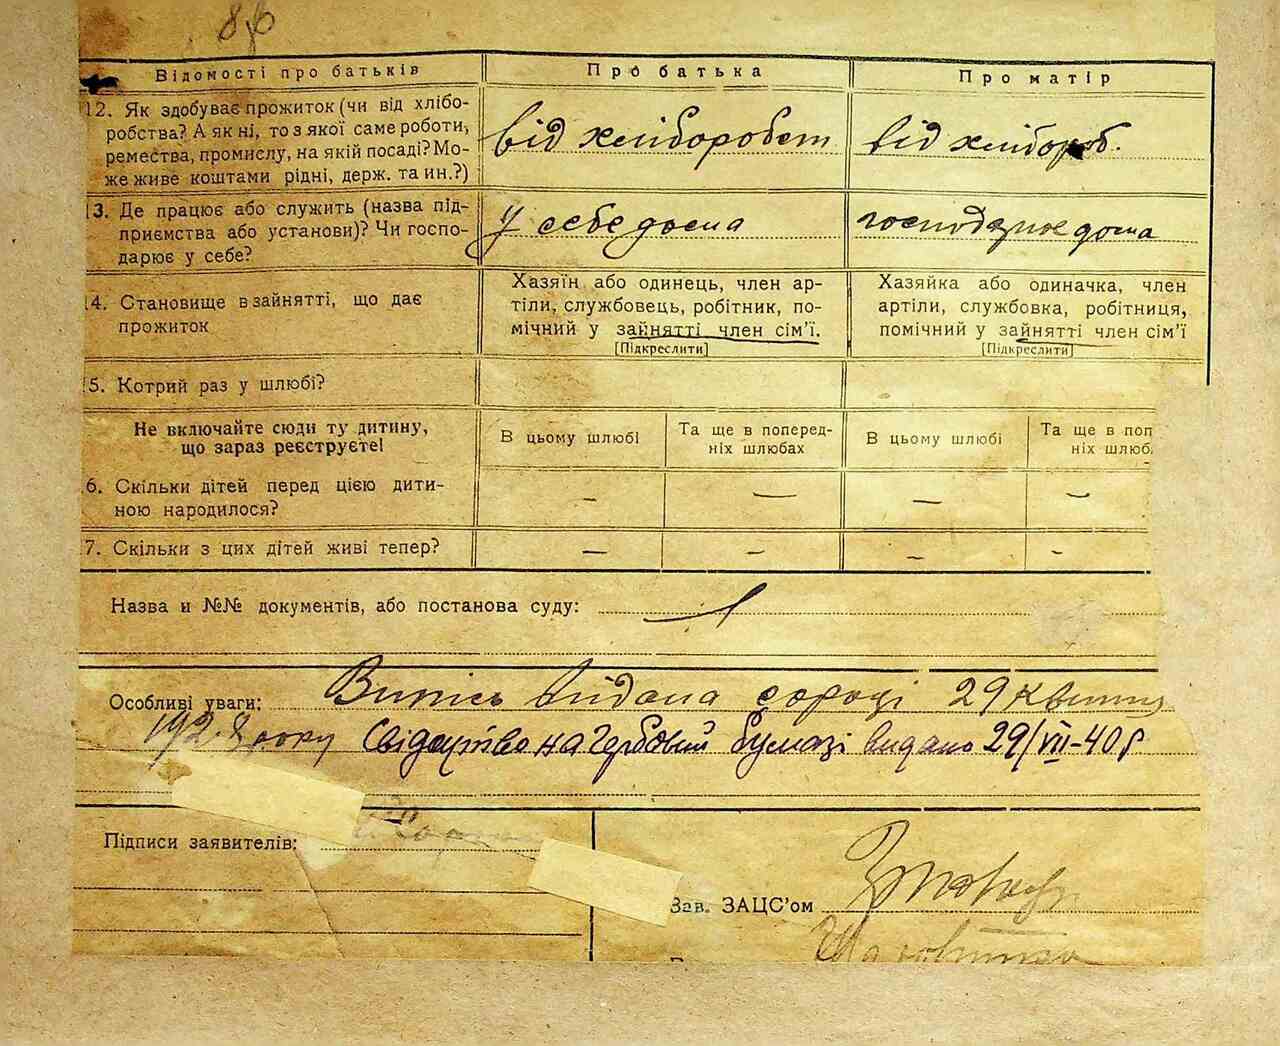 86
Відомості про батьків
Про батька
Про матір
12. Як здобуває прожиток (чи від хлібо-
робства? А як ні, то з якої саме роботи,
ремества, промислу, на якій посаді? Мо-
же живе коштами рідні, держ. та ин.?)
від хліборобст
від хлібороб.
13. Де працює або служить (назва під-
приємства або установи)? Чи госпо-
дарює у себе?
У себе дома
дома
4. Становище в зайнятті, що дає
прожиток
Хазяїн або одинець, член ар-
тіли, службовець, робітник, по-
мічний у зайнятті член сім'ї.
[Підкреслити]
Хазяйка або одиначка, член
артіли, службовка, робітниця,
помічний у зайнятті член сім'ї
[Підкреслити]
5. Котрий раз у шлюбі?
Не включайте сюди ту дитину,
що зараз реєструєте!
В цьому шлюбі
Та ще в поперед-
ніх шлюбах
В цьому шлюбі
Та ще в поп
ніх шлюб
6. Скільки дітей перед цією дити-
ною народилося?
— — — —
7. Скільки з цих дітей живі тепер?
— — — —
Назва и №№ документів, або постанова суду:
Особливі уваги: Випись видана 29 квітня
192 року Свідоцтво на гербовій бумазі видано 29/VII-40 р
Підписи заявителів:
Зав. ЗАЦС'ом